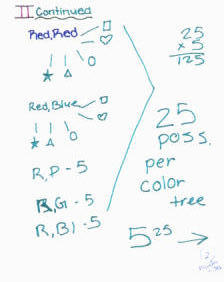 II Continued
Red, Red
Red, Blue
R, P - 5
R, G - 5
R, Bl - 5
25
x 5
125
25
poss.
per
color
tree
5 25